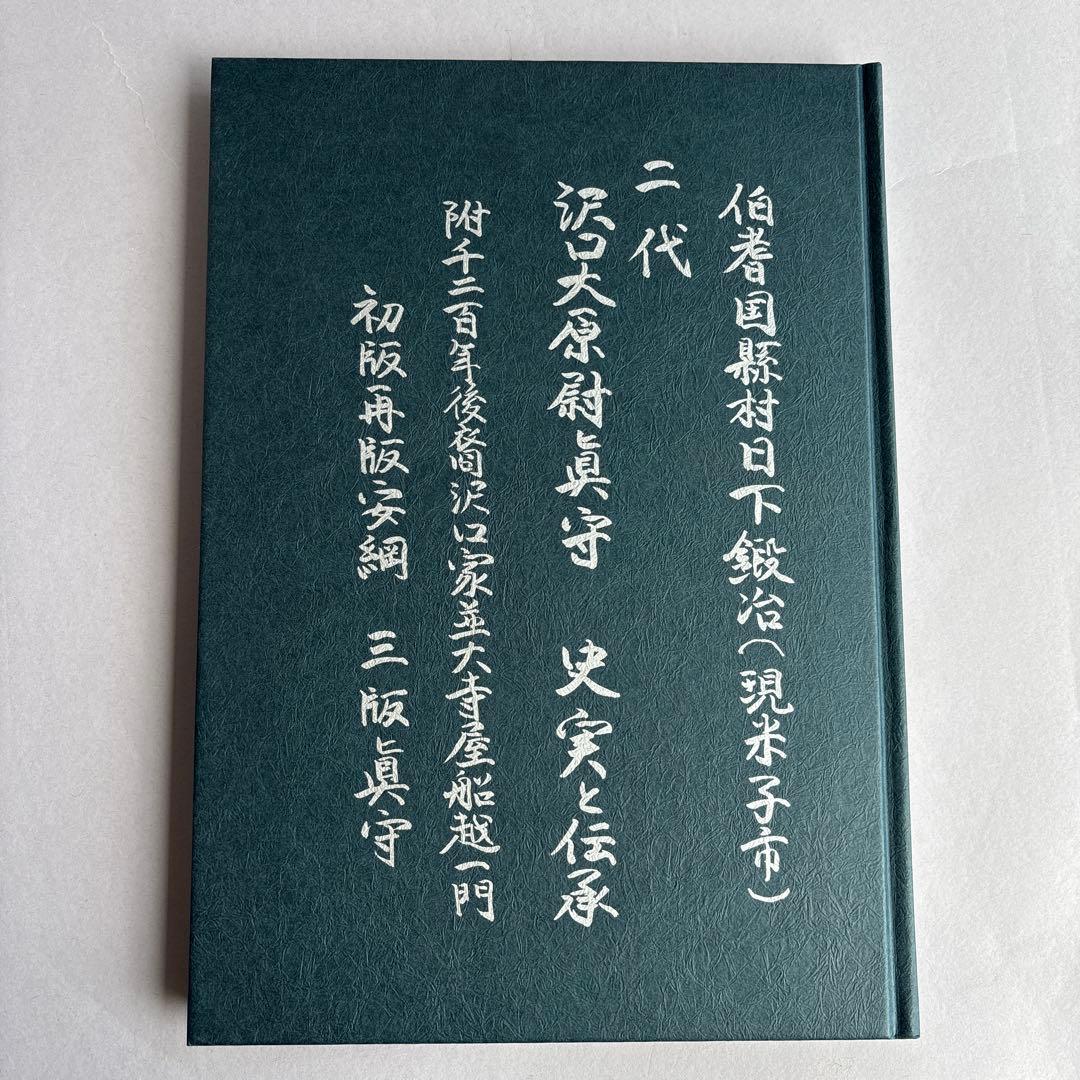 伯耆国縣村日下鍛冶(現米子市)
二代
沢口大原尉眞守 史実と伝承
附千二百年後衣笥沢口家並大寺屋船越一門
初版再版安綱 三版眞守